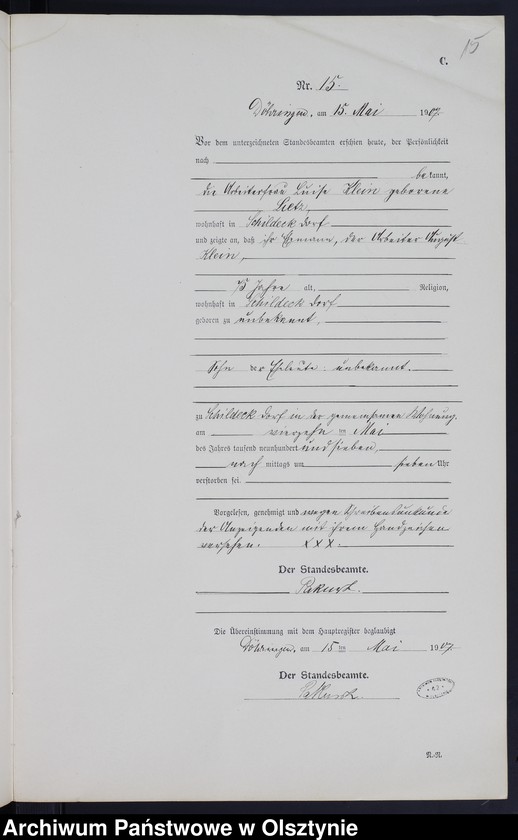 15
C.
Nr. 15.
Döhringen, am 15. Mai 1907
Vor dem unterzeichneten Standesbeamten erschien heute, der Persönlichkeit
nach
bekannt,
die Arbeiterfrau Luise Klein geborene
wohnhaft in Schildeck Dorf
und zeigte an, daß ihr Ehemann, der Arbeiter August
Klein,
75 Jahre alt, Religion,
wohnhaft in Schildeck Dorf
geboren zu unbekannt,
Sohn der Eheleute unbekannt.
zu Schildeck Dorf in der gemeinsamen Wohnung,
am vierzehn ten Mai
des Jahres tausend neunhundert und sieben,
nach mittags um sieben Uhr
verstorben sei.
Vorgelesen, genehmigt und wegen Schreibensunkunde
der Anzeigenden mit ihrem Handzeichen
versehen. XXX.
Der Standesbeamte.
Die Übereinstimmung mit dem Hauptregister beglaubigt
Döhringen, am 15 ten Mai 1907
Der Standesbeamte.
N.-N.
Archiwum Państwowe w Olsztynie